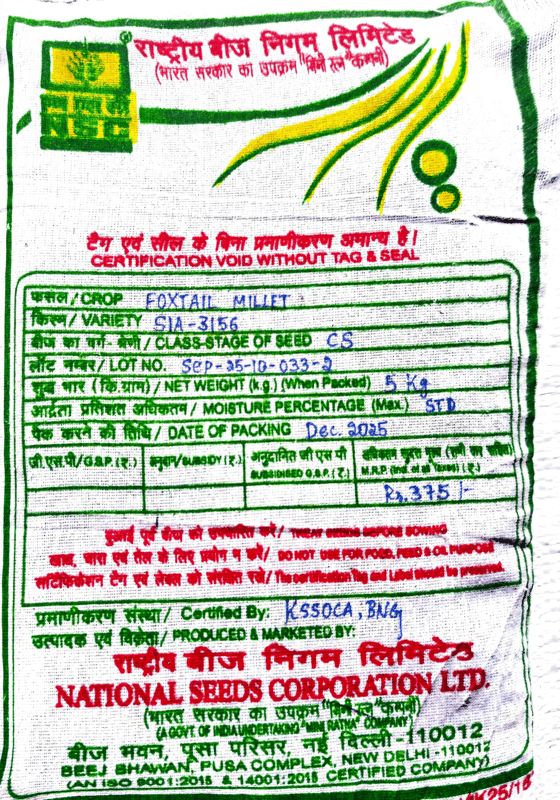 राष्ट्रीय बीज निगम लिमिटेड
(भारत सरकार का उपक्रम "मिनी रत्न" कम्पनी)
एन एस सी
NSC
टैग एवं सील के बिना प्रमाणीकरण अमान्य है।
CERTIFICATION VOID WITHOUT TAG & SEAL
फसल / CROP FOXTAIL MILLET
किस्म / VARIETY SIA-3156
बीज का वर्ग- श्रेणी / CLASS-STAGE OF SEED CS
लॉट नम्बर / LOT NO. Sep-25-10-033-2
शुद्ध भार (कि.ग्राम) / NET WEIGHT (k.g.) (When Packed) 5 Kg
आर्द्रता प्रतिशत अधिकतम) / MOISTURE PERCENTAGE (Max.) STD
पैक करने की तिथि / DATE OF PACKING Dec. 2025
जी.एस.पी./G.S.P. (₹.) अनुदान/SUBSIDY (₹.) अनुदानित जी एस पी अधिकतम खुदरा मूल्य (सभी कर सहित)
SUBSIDISED G.S.P. (₹.) M.R.P. (Incl. of all Taxes) (₹.)
Rs. 375/-
बुआई पूर्व बीज को उपचारित करें / TREAT SEEDS BEFORE SOWING
खाद्य, चारा एवं तेल के लिए प्रयोग न करें / DO NOT USE FOR FOOD, FEED & OIL PURPOSE
सर्टिफिकेशन टैग एवं लेबल को संरक्षित रखें / The certification Tag and Label should be preserved.
प्रमाणीकरण संस्था / Certified By: KSSOCA, BNG
उत्पादक एवं विक्रेता / PRODUCED & MARKETED BY:
राष्ट्रीय बीज निगम लिमिटेड
NATIONAL SEEDS CORPORATION LTD.
(भारत सरकार का उपक्रम "मिनी रत्न" कम्पनी)
(A GOVT. OF INDIA UNDERTAKING "MINI RATNA" COMPANY)
बीज भवन, पूसा परिसर, नई दिल्ली -110012
BEEJ BHAWAN, PUSA COMPLEX, NEW DELHI -110012
(AN ISO 9001:2015 & 14001:2015 CERTIFIED COMPANY)